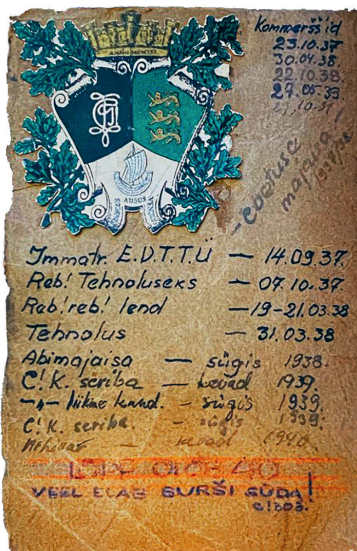 Kommerššid
23.10.37
30.04.38.
22.10.38
27.05.39
coetuse
majaga
Immatr. E.V.T.T.Ü — 14.09.37.
Reb! Tehnoluseks — 07.10.37.
Reb!reb! lend — 19-21.03.38
Tehnolus — 31.03.38
Abimajaisa — sügis 1938.
C!K. scriba — kevad 1939.
sügis 1939.
C!K. scriba — sügis 1939.
kevad 1940.
VEEL ELAB BURŠI SÜDA!